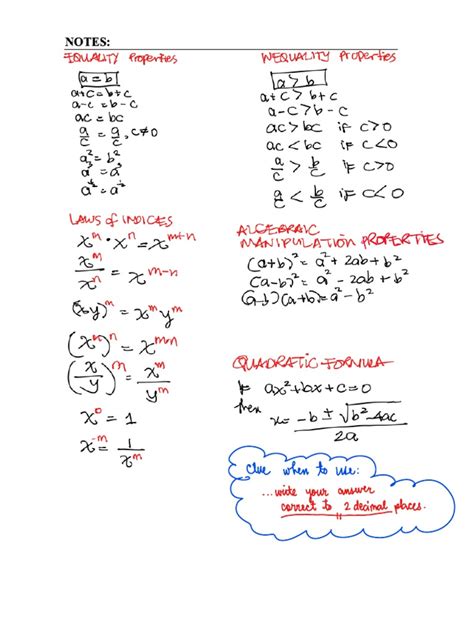 NOTES:
EQUALITY Properties
a = b
a+c = b+c
a-c = b-c
ac = bc
a/c = a/c, c≠0
a² = b²
a³ = a³
INEQUALITY Properties
a > b
a+c > b+c
a-c > b-c
ac > bc if c>0
ac < bc if c<0
a/c > b/c if c>0
a/c < b/c if c<0
LAWS of INDICES
x^m · x^n = x^(m+n)
x^m/x^n = x^(m-n)
(xy)^m = x^m y^m
(x^m)^n = x^(mn)
(x/y)^m = x^m/y^m
x^0 = 1
x^(-m) = 1/x^m
ALGEBRAIC
MANIPULATION PROPERTIES
(a+b)² = a² + 2ab + b²
(a-b)² = a² - 2ab + b²
(a-b)(a+b) = a² - b²
QUADRATIC FORMULA
If ax² + bx + c = 0
then x = (-b ± √(b² - 4ac))/2a
Clue when to use:
...write your answer
correct to 2 decimal places.